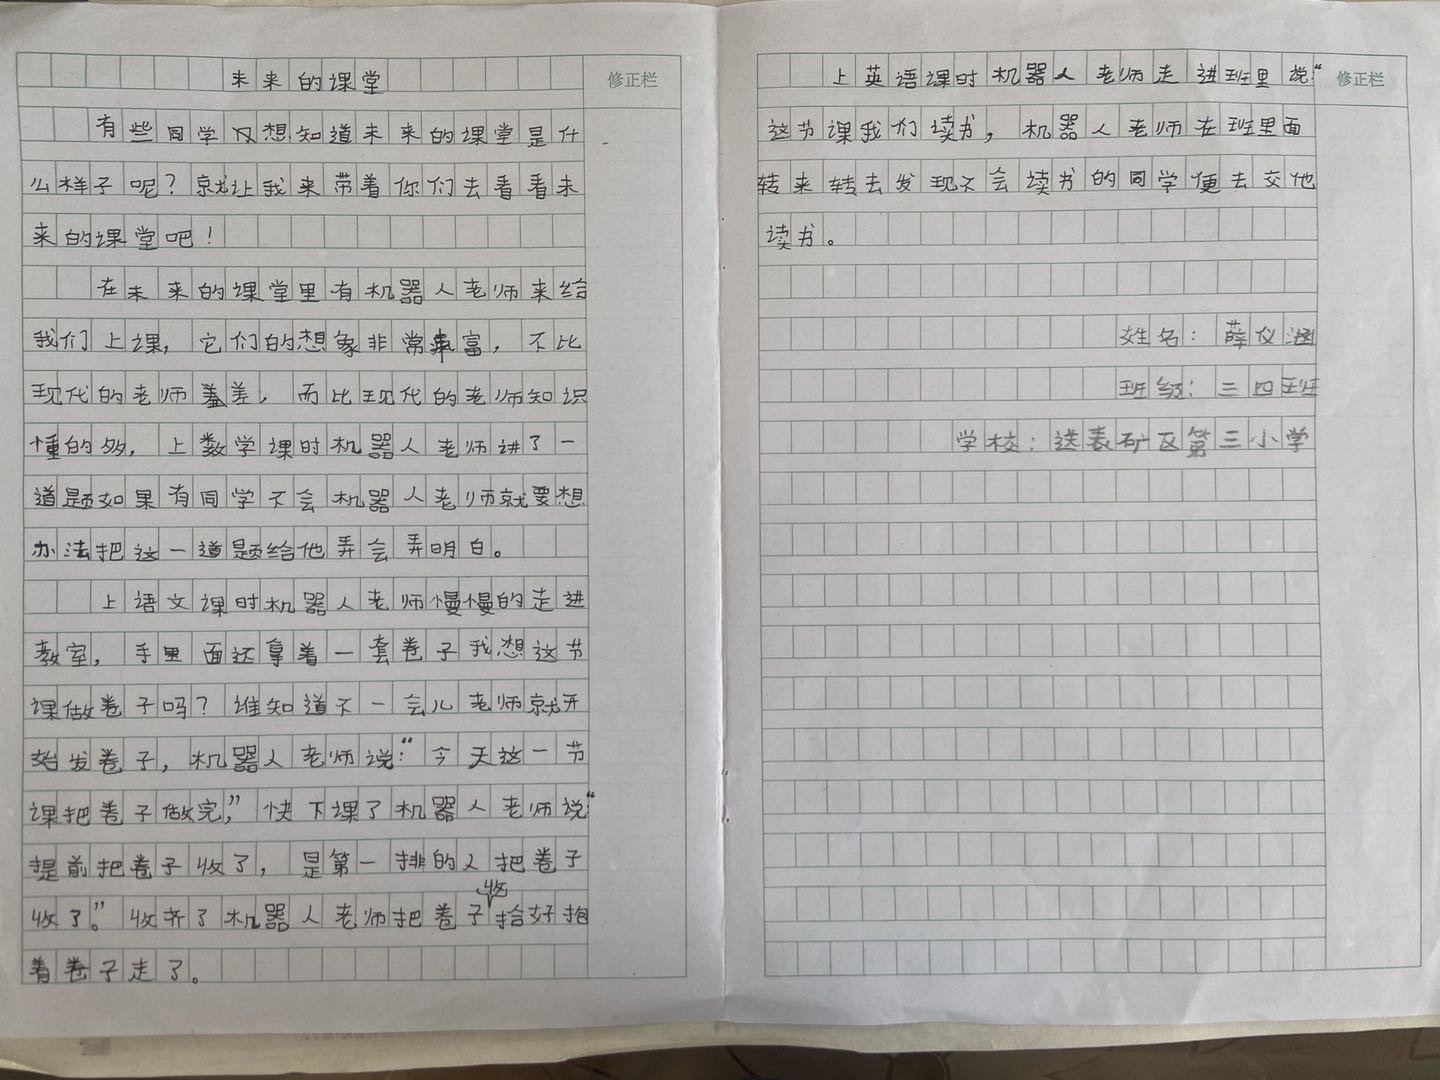 未来的课堂
修正栏
有些同学又想知道未来的课堂是什
么样子呢？就让我来带着你们去看看未
来的课堂吧！
在未来的课堂里有机器人老师来给
我们上课，它们的想象非常丰富，不比
现代的老师差，而比现代的老师知识
懂的多，上数学课时机器人老师讲了一
道题如果有同学不会机器人老师就要想
办法把这一道题给他弄会弄明白。
上语文课时机器人老师慢慢的走进
教室，手里面还拿着一套卷子我想这节
课做卷子吗？谁知道不一会儿老师就开
始发卷子，机器人老师说：“今天这一节
课把卷子做完，”快下课了机器人老师说“
提前把卷子收了，是第一排的人把卷子
收了。”收齐了机器人老师把卷子收拾好抱
着卷子走了。
上英语课时机器人老师走进班里说：“
修正栏
这节课我们读书，机器人老师在班里面
转来转去发现不会读书的同学便去交他
读书。
姓名：薛仪涵
班级：三四班
学校：送表矿区第三小学